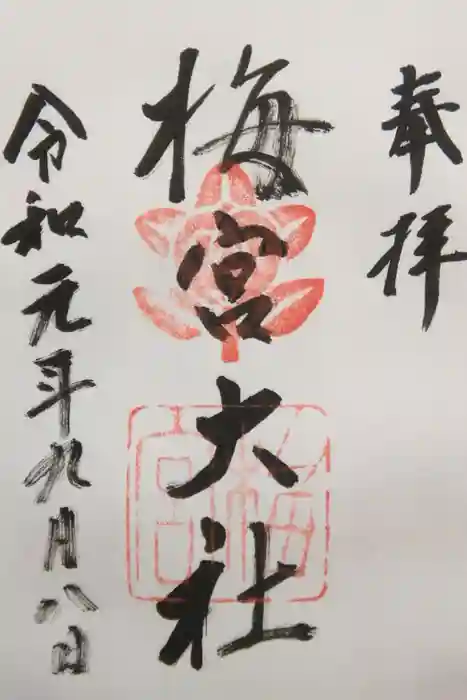 奉拝
梅宮大社
令和元年九月八日